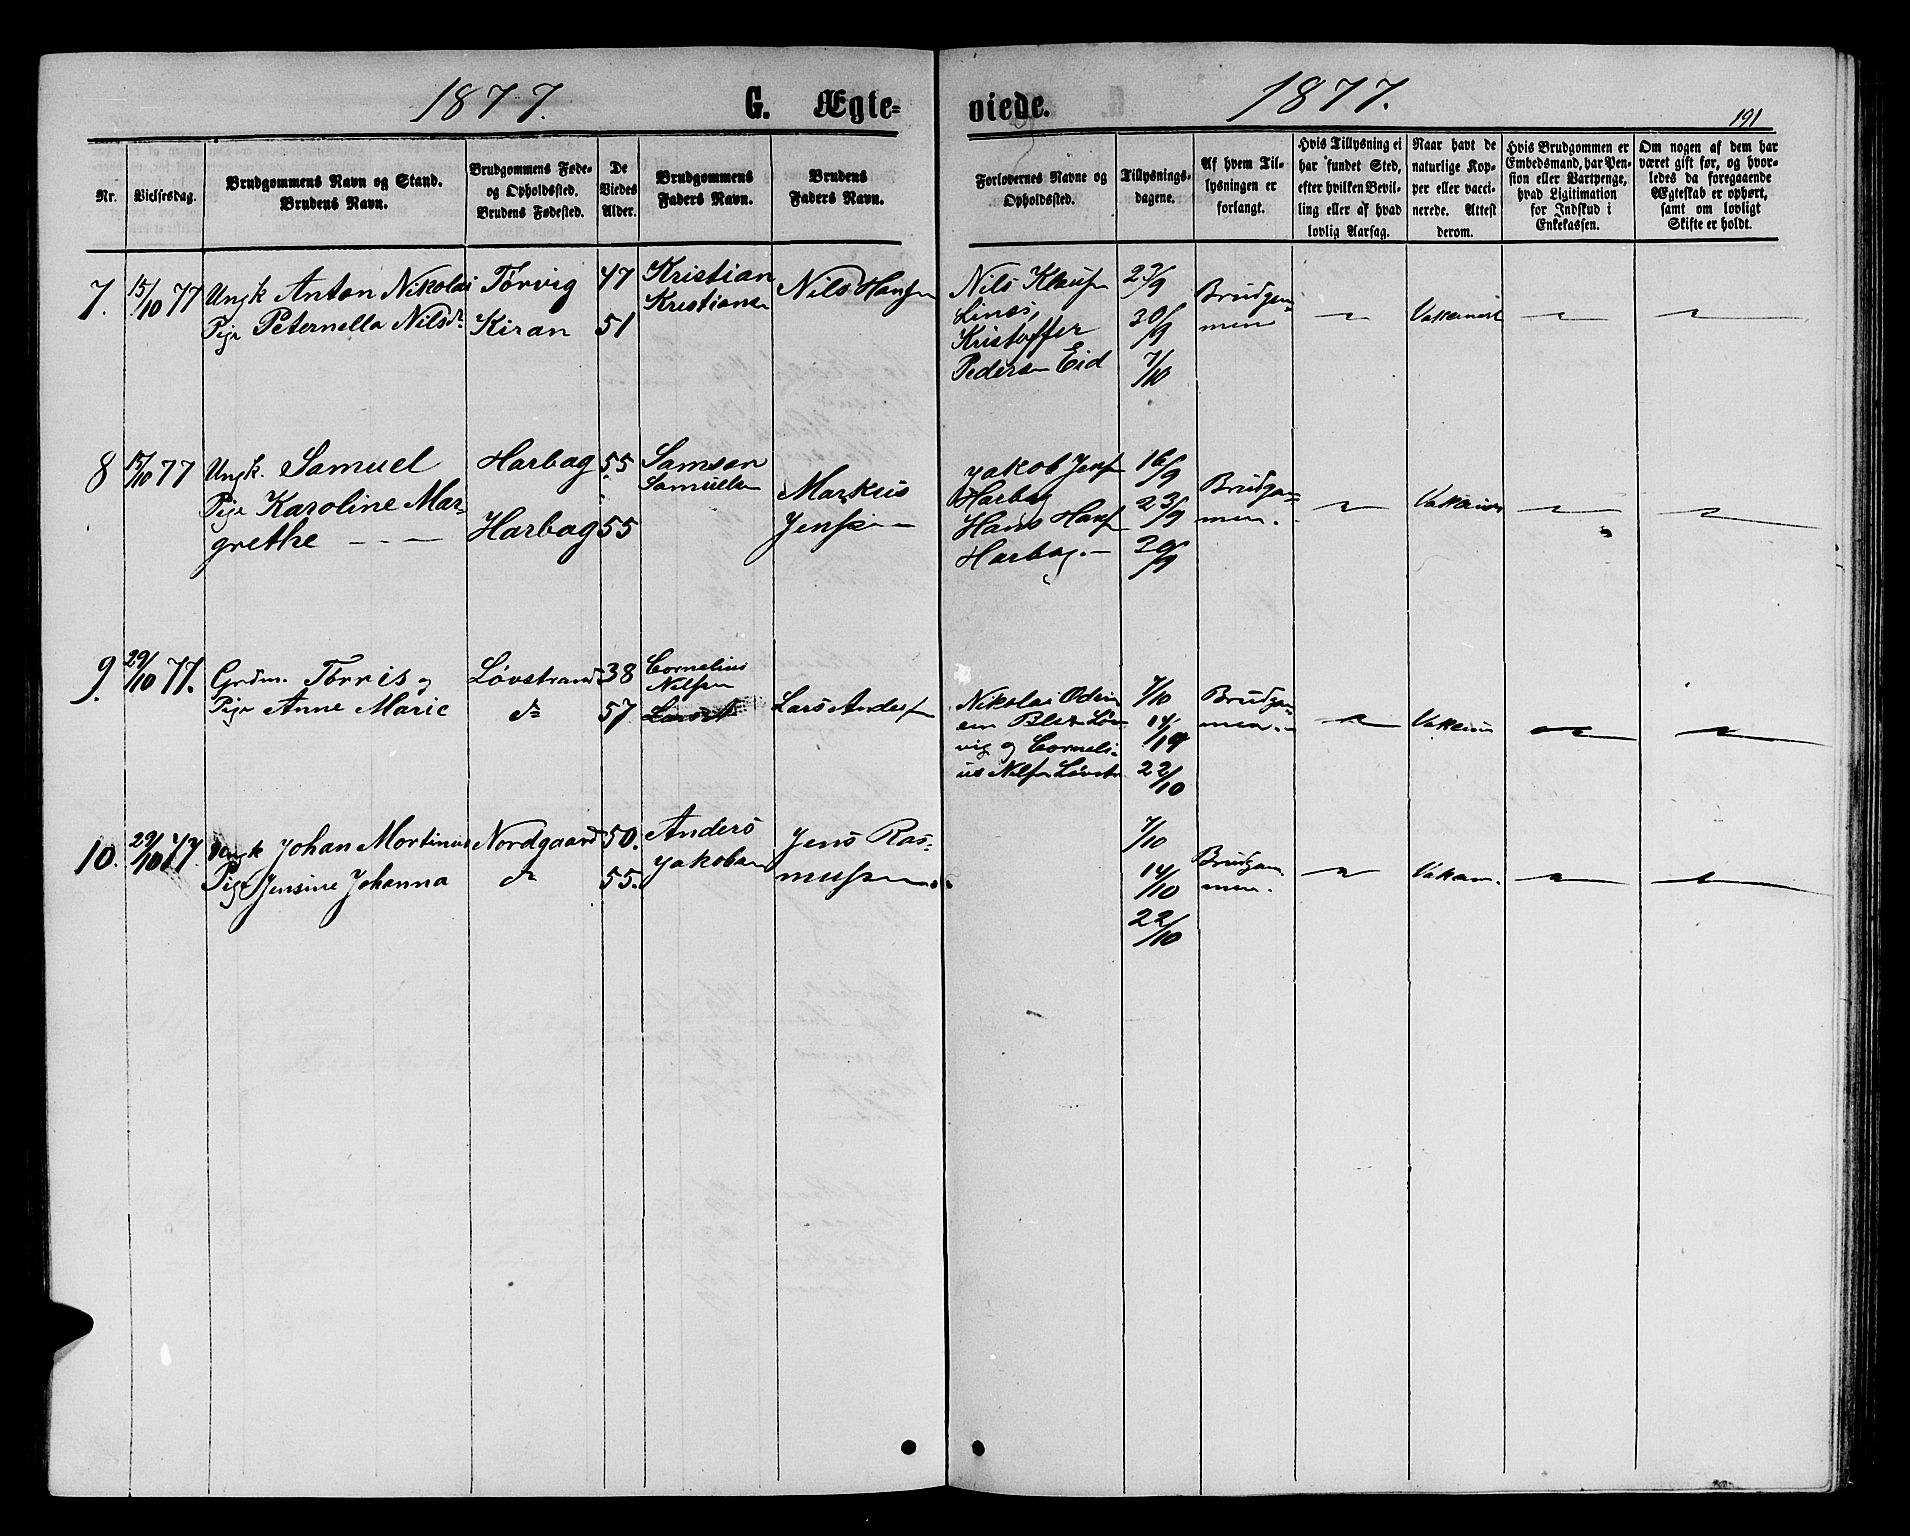 1877. G. Ægte-
viede. 1877.
191
Nr.
Vielsesdag.
Brudgommens Navn og Stand.
Brudens Navn.
Brudgommens Føde-
og Opholdssted.
Brudens Fødested.
De
Viedes
Alder.
Brudgommens
Faders Navn.
Brudens
Faders Navn.
Forlovernes Navne og
Opholdssted.
Tillysnings-
dagene.
Af hvem Til-
lysningen er
forlangt.
Hvis Tillysning ei
har fundet Sted,
efter hvilken Bevil-
ling eller af hvad
lovlig Aarsag.
Naar havt de
naturlige Kop-
per eller vacci-
nerede. Attest
derom.
Hvis Brudgommen er
Embedsmand, har Pen-
sion eller Vartpenge,
hvad Ligitimation
for Indskud i
Enkekassen.
Om nogen af dem har
været gift før, og hvor-
ledes da foregaaende
Ægteskab er ophørt,
samt om lovligt
Skifte er holdt.
7. 15/10 77
Ungk Anton Nikolai
Pige Peternella Nilsdr
Tørvig
Kiran
47
51
Kristian
Kristiansen
Nils Hansen
Nils Klausen
Linæs,
Kristoffer
Pedersen Eid
23/9
30/9
7/10
Brudgom-
men
8 15/10 77
Ungk. Samuel
Pige Karoline Mar-
grethe
Harbag
Harbag
55
55
Samson
Samuelsen
Markus
Jensen
Jakob Jensen
Harbag
Hans Hansen
Harbag.
16/9
23/9
30/9
Brudgom-
men.
9. 29/10 77.
Grdm. Torris og
Pige Anne Marie
Løvstrand
do
38
57
Cornelius
Nilsen
Lars Andersen
Nikolai
vig og Corneli-
us Nilsen Løvstr
7/10
14/10
22/10
Brudgom-
men.
10. 29/10 77.
Ungk Johan Mortinus
Pige Jensine Johanna
Nordgaard
do
50.
55.
Anders
Jakobsen
Jens Ras-
mussen.
7/10
14/10
22/10
Brudgom
men.